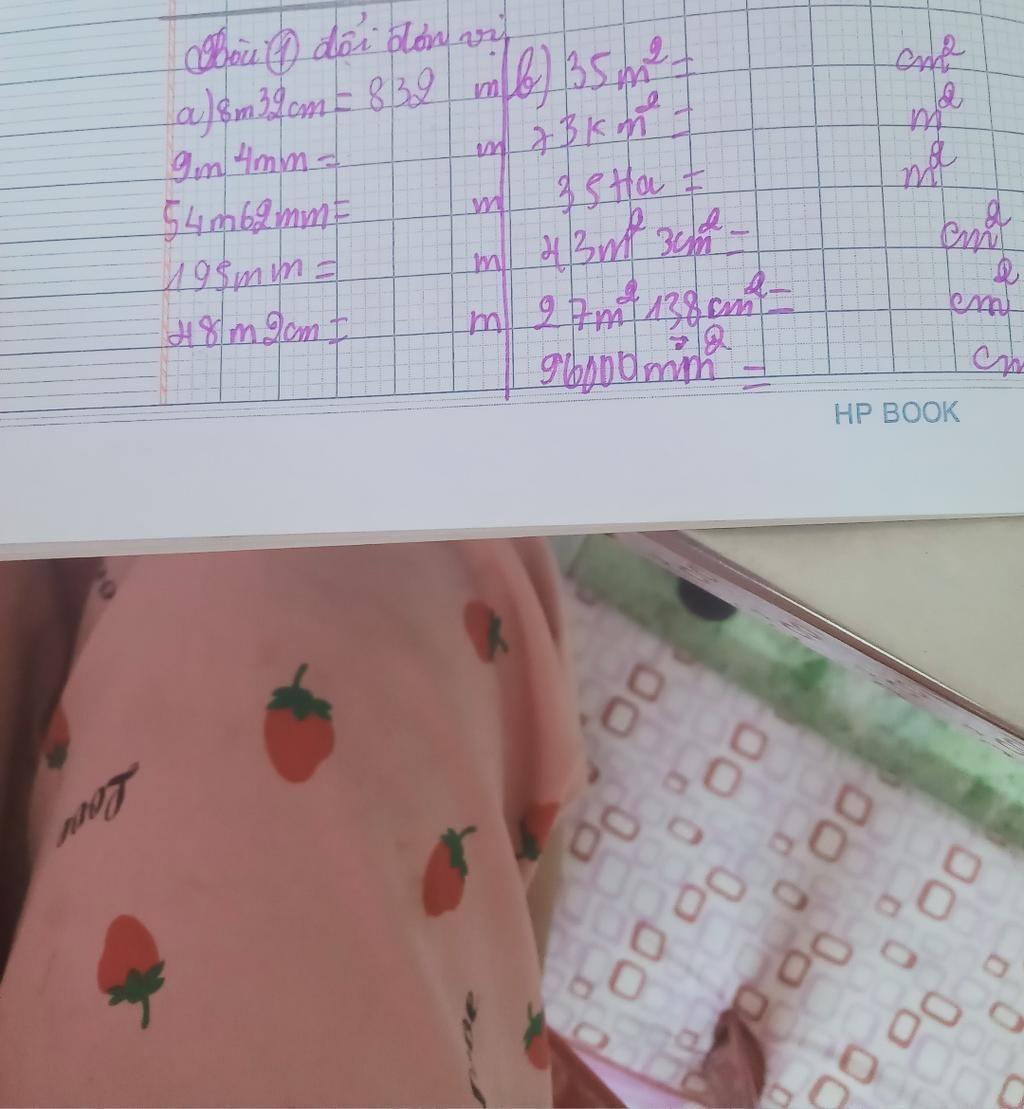 Bài ① đổi đơn vị
a) 8m32cm = 832 m
9m 4mm = m
54m62mm = m
195mm = m
48m2cm = m
b) 35m² = cm²
73km² = m²
35Ha = m²
43m² 3cm² = cm²
27m² 138cm² = cm²
96000mm² =
HP BOOK
Love